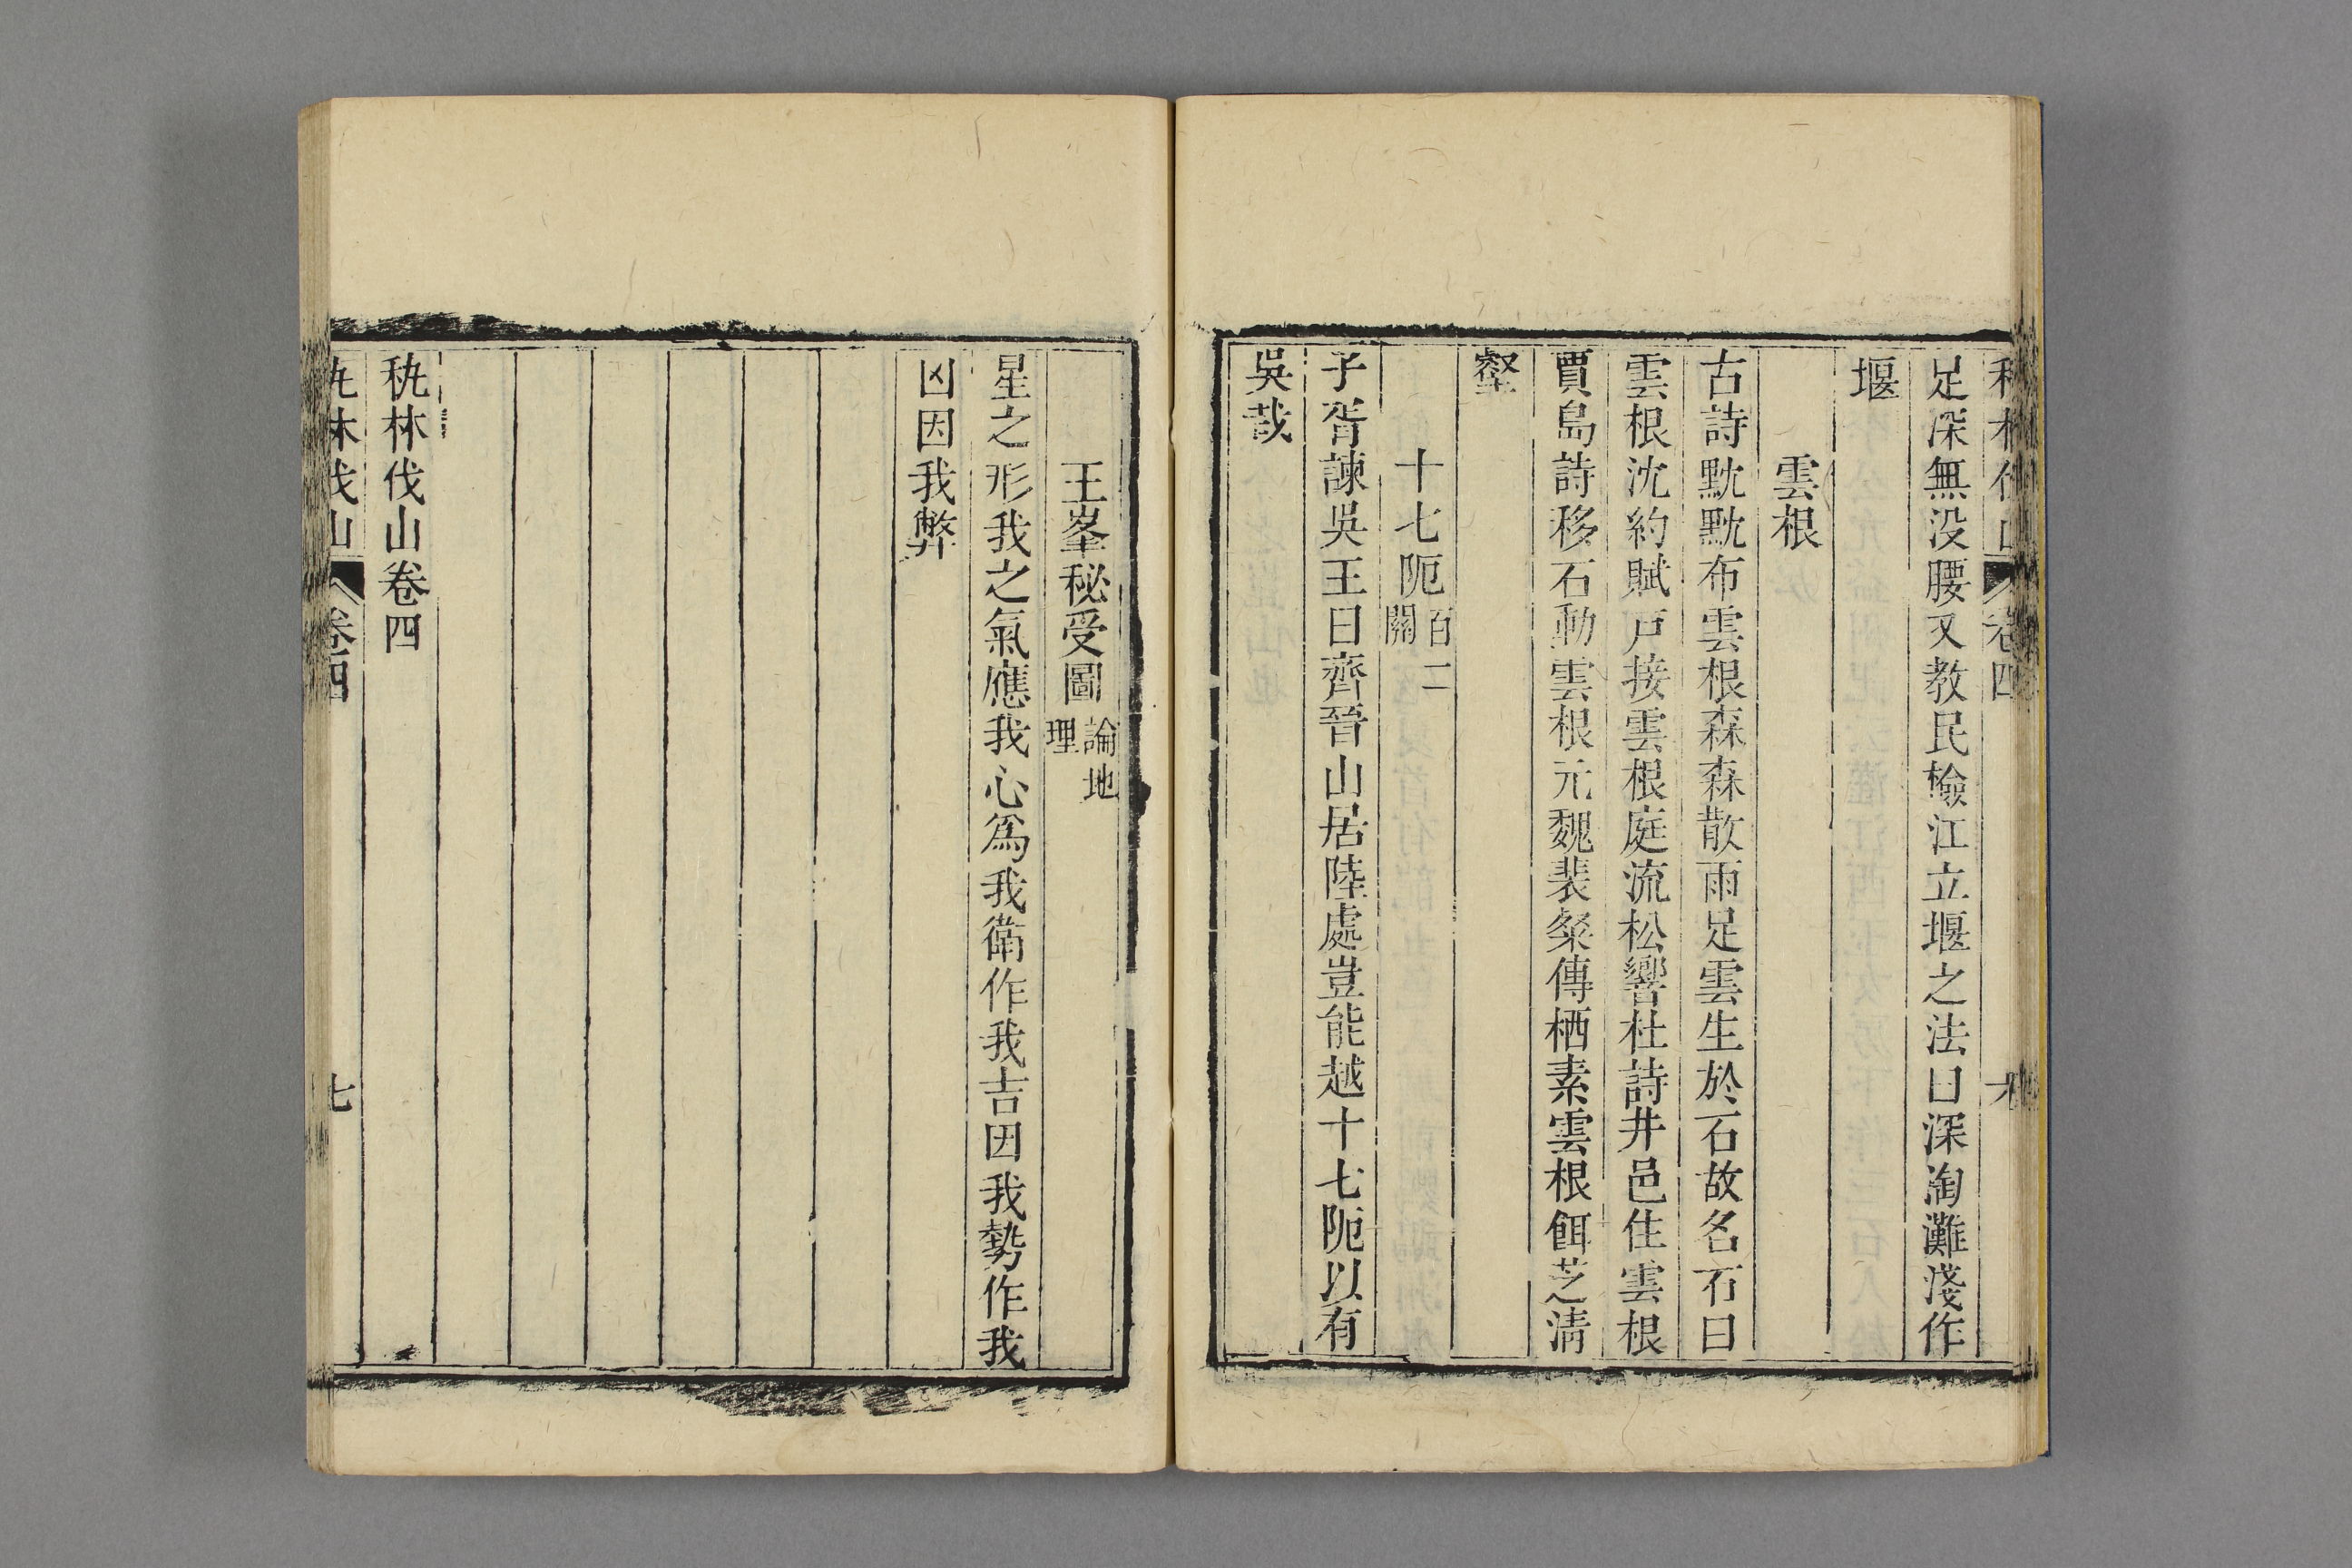 足深無没腰又教民檢江立堰之法曰深淘灘淺作
堰
雲根
古詩黕黕布雲根森森散雨足雲生於石故名石曰
雲根沈約賦戸接雲根庭流松響杜詩井邑住雲根
賈島詩移石動雲根元魏裴粲傳栖素雲根餌芝清
壑
十七阨百二關
子胥諫吳王曰齊晉山居陸處豈能越十七阨以有
吳哉
王峯秘受圖論地理
星之形我之氣應我心為我衛作我吉因我勢作我
凶因我弊
秇林伐山卷四
秇林伐山 卷四 七